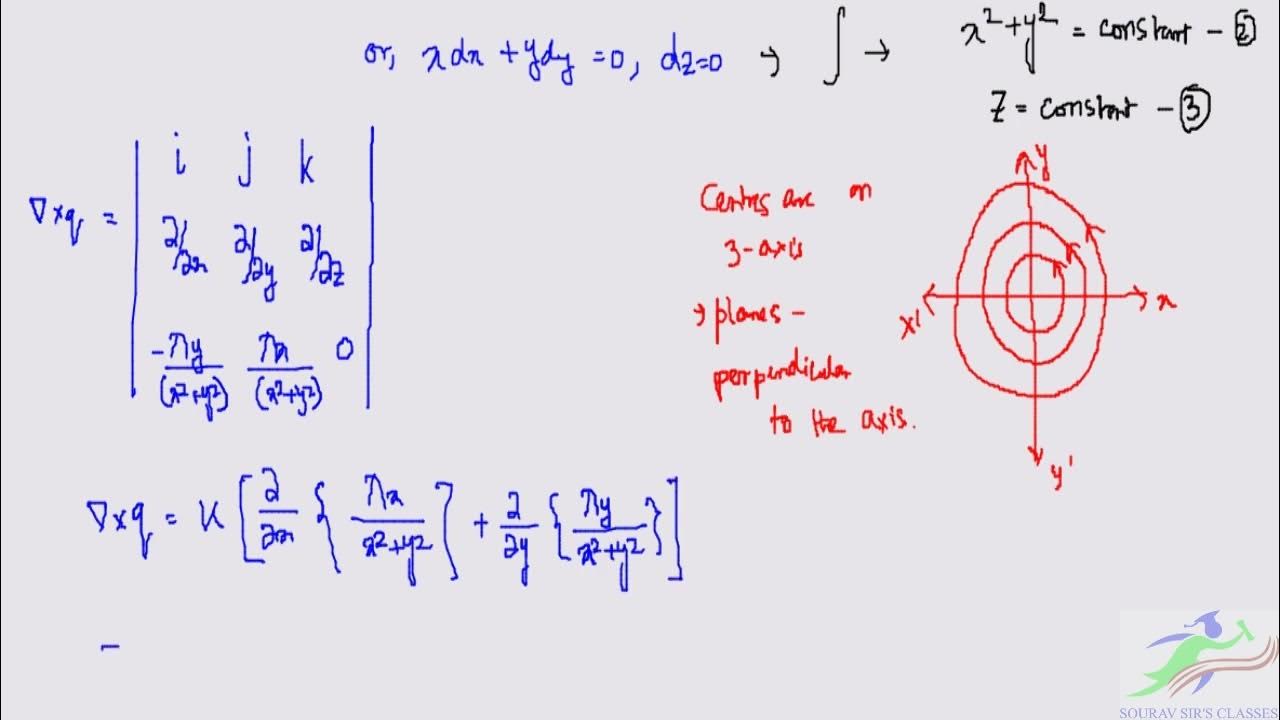 or, x dx + y dy = 0, dz=0 → ∫ → x² + y² = constant - ②
z = constant - ③
∇×q = | i j k |
| ∂/∂x ∂/∂y ∂/∂z |
| -λy/(x²+y²) λx/(x²+y²) 0 |
Centres are on
z-axis
→ planes -
perpendicular
to the axis.
y
x'
x
y'
∇×q = k [ ∂/∂x { λx/x²+y² } + ∂/∂y { λy/x²+y² } ]
=
SOURAV SIR'S CLASSES